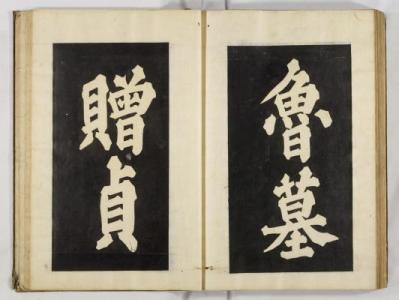 魯墓
贈貞